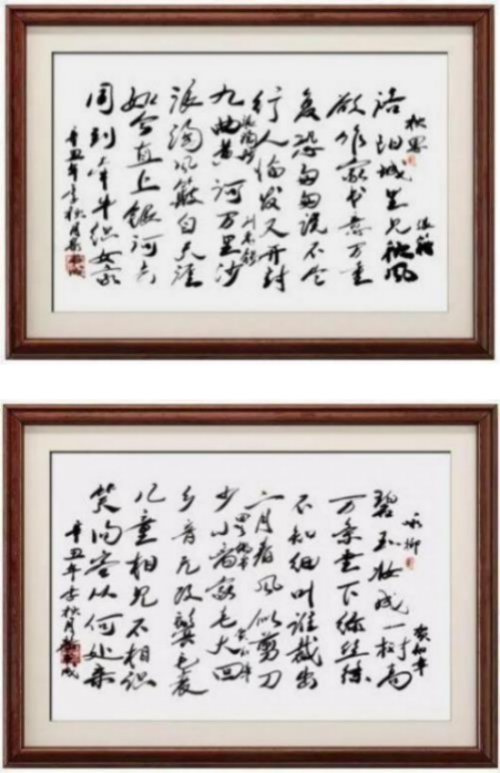 秋思 张籍
洛阳城里见秋风
欲作家书意万重
复恐匆匆说不尽
行人临发又开封
浪淘沙 刘禹锡
九曲黄河万里沙
浪淘风簸自天涯
如今直上银河去
同到牵牛织女家
辛丑年季秋月
咏柳 贺知章
碧玉妆成一树高
万条垂下绿丝绦
不知细叶谁裁出
二月春风似剪刀
回乡偶书 贺知章
少小离家老大回
乡音无改鬓毛衰
儿童相见不相识
笑问客从何处来
辛丑年季秋月